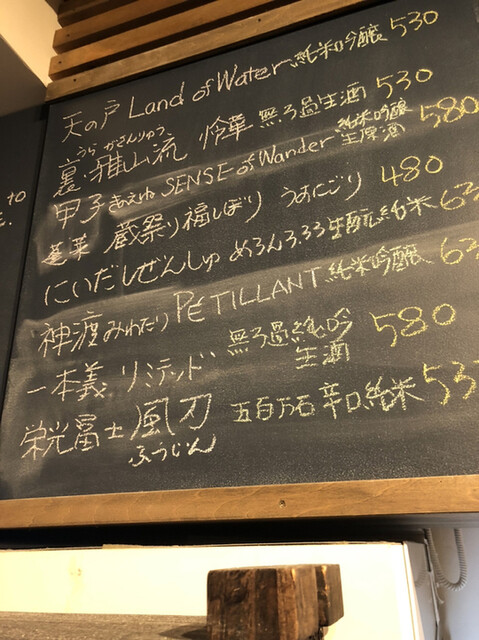 天の戸 Land of Water 純米吟醸 530
うら がさんりゅう
裏・雅山流 怜華 無ろ過生酒 530
甲子 きのえね SENSE of Wander 純米吟醸 生原酒 580
蓬莱 蔵祭り福しぼり うすにごり 480
にいだしぜんしゅ めろん3.33 生酛純米 63
神渡 みわたり PÉTILLANT 純米吟醸 63
一本義 リミテッド 無ろ過純吟 生酒 580
栄光冨士 風刃 五百万石 辛口純米 53
ふうじん
to